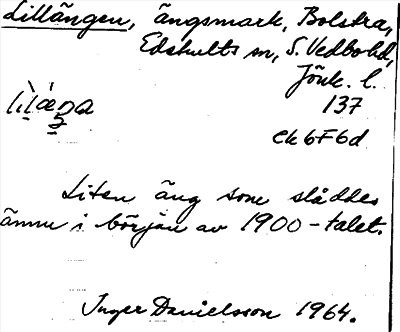 Lillängen, ängsmark, Bolstra,
Edshults sn, S. Vedbohd,
Jönk. l.
137
ek 6F6d
Liten äng som slåddes
ännu i början av 1900-talet.
Inger Danielsson 1964.